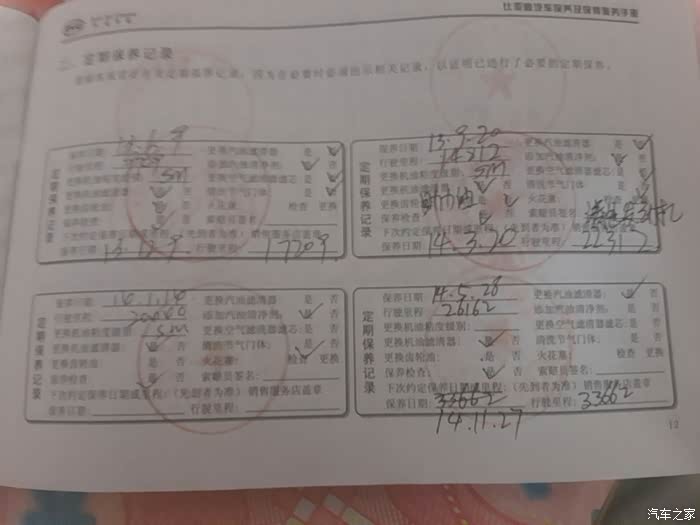 比亚迪汽车保养及保修服务手册
定期保养记录
录，因为在必要时必须出示相关记录，以证明已进行了必要的定期保养。
定期保养记录
更换汽油滤清器 是 否
添加汽油清净剂: 是 否
5m 更换空气滤清器滤芯: 是 否
更换机油滤清器 是 否 清洗节气门体: 是 否
是 否 火花塞: 检查 更换
是 否 索赔员签名:
下次约定保养日期或里程:(先到者为准) 销售服务店盖章
保养日期: 行驶里程: 17209
定期保养记录
保养日期: 13.9.20 更换汽油滤清器 是 否
行驶里程: 添加汽油清净剂: 是 否
5m 更换空气滤清器滤芯: 是 否
更换机油滤清器 是 否 清洗节气门体: 是 否
是 否 火花塞: 检查 更换
保养检查: 是 否 索赔员签名:
下次约定保养日期或里程:(先到者为准) 销售服务店盖章
保养日期: 14.3.20 行驶里程: 22312
定期保养记录
保养日期: 14.1.14 更换汽油滤清器: 是 否
行驶里程: 添加汽油清净剂: 是 否
更换机油粘度级别: 5m 更换空气滤清器滤芯: 是 否
更换机油滤清器: 是 否 清洗节气门体: 是 否
更换齿轮油: 是 否 火花塞: 检查 更换
保养检查: 是 否 索赔员签名:
下次约定保养日期或里程:(先到者为准) 销售服务店盖章
保养日期: 行驶里程:
定期保养记录
保养日期: 14.5.28 更换汽油滤清器: 是 否
行驶里程: 26162 添加汽油清净剂: 是 否
更换机油粘度级别: 更换空气滤清器滤芯: 是 否
更换机油滤清器: 是 否 清洗节气门体: 是 否
更换齿轮油: 是 否 火花塞: 检查 更换
保养检查: 是 否 索赔员签名:
下次约定保养日期或里程:(先到者为准) 销售服务店盖章
保养日期: 33662 行驶里程: 33662
14.11.27
12
汽车之家